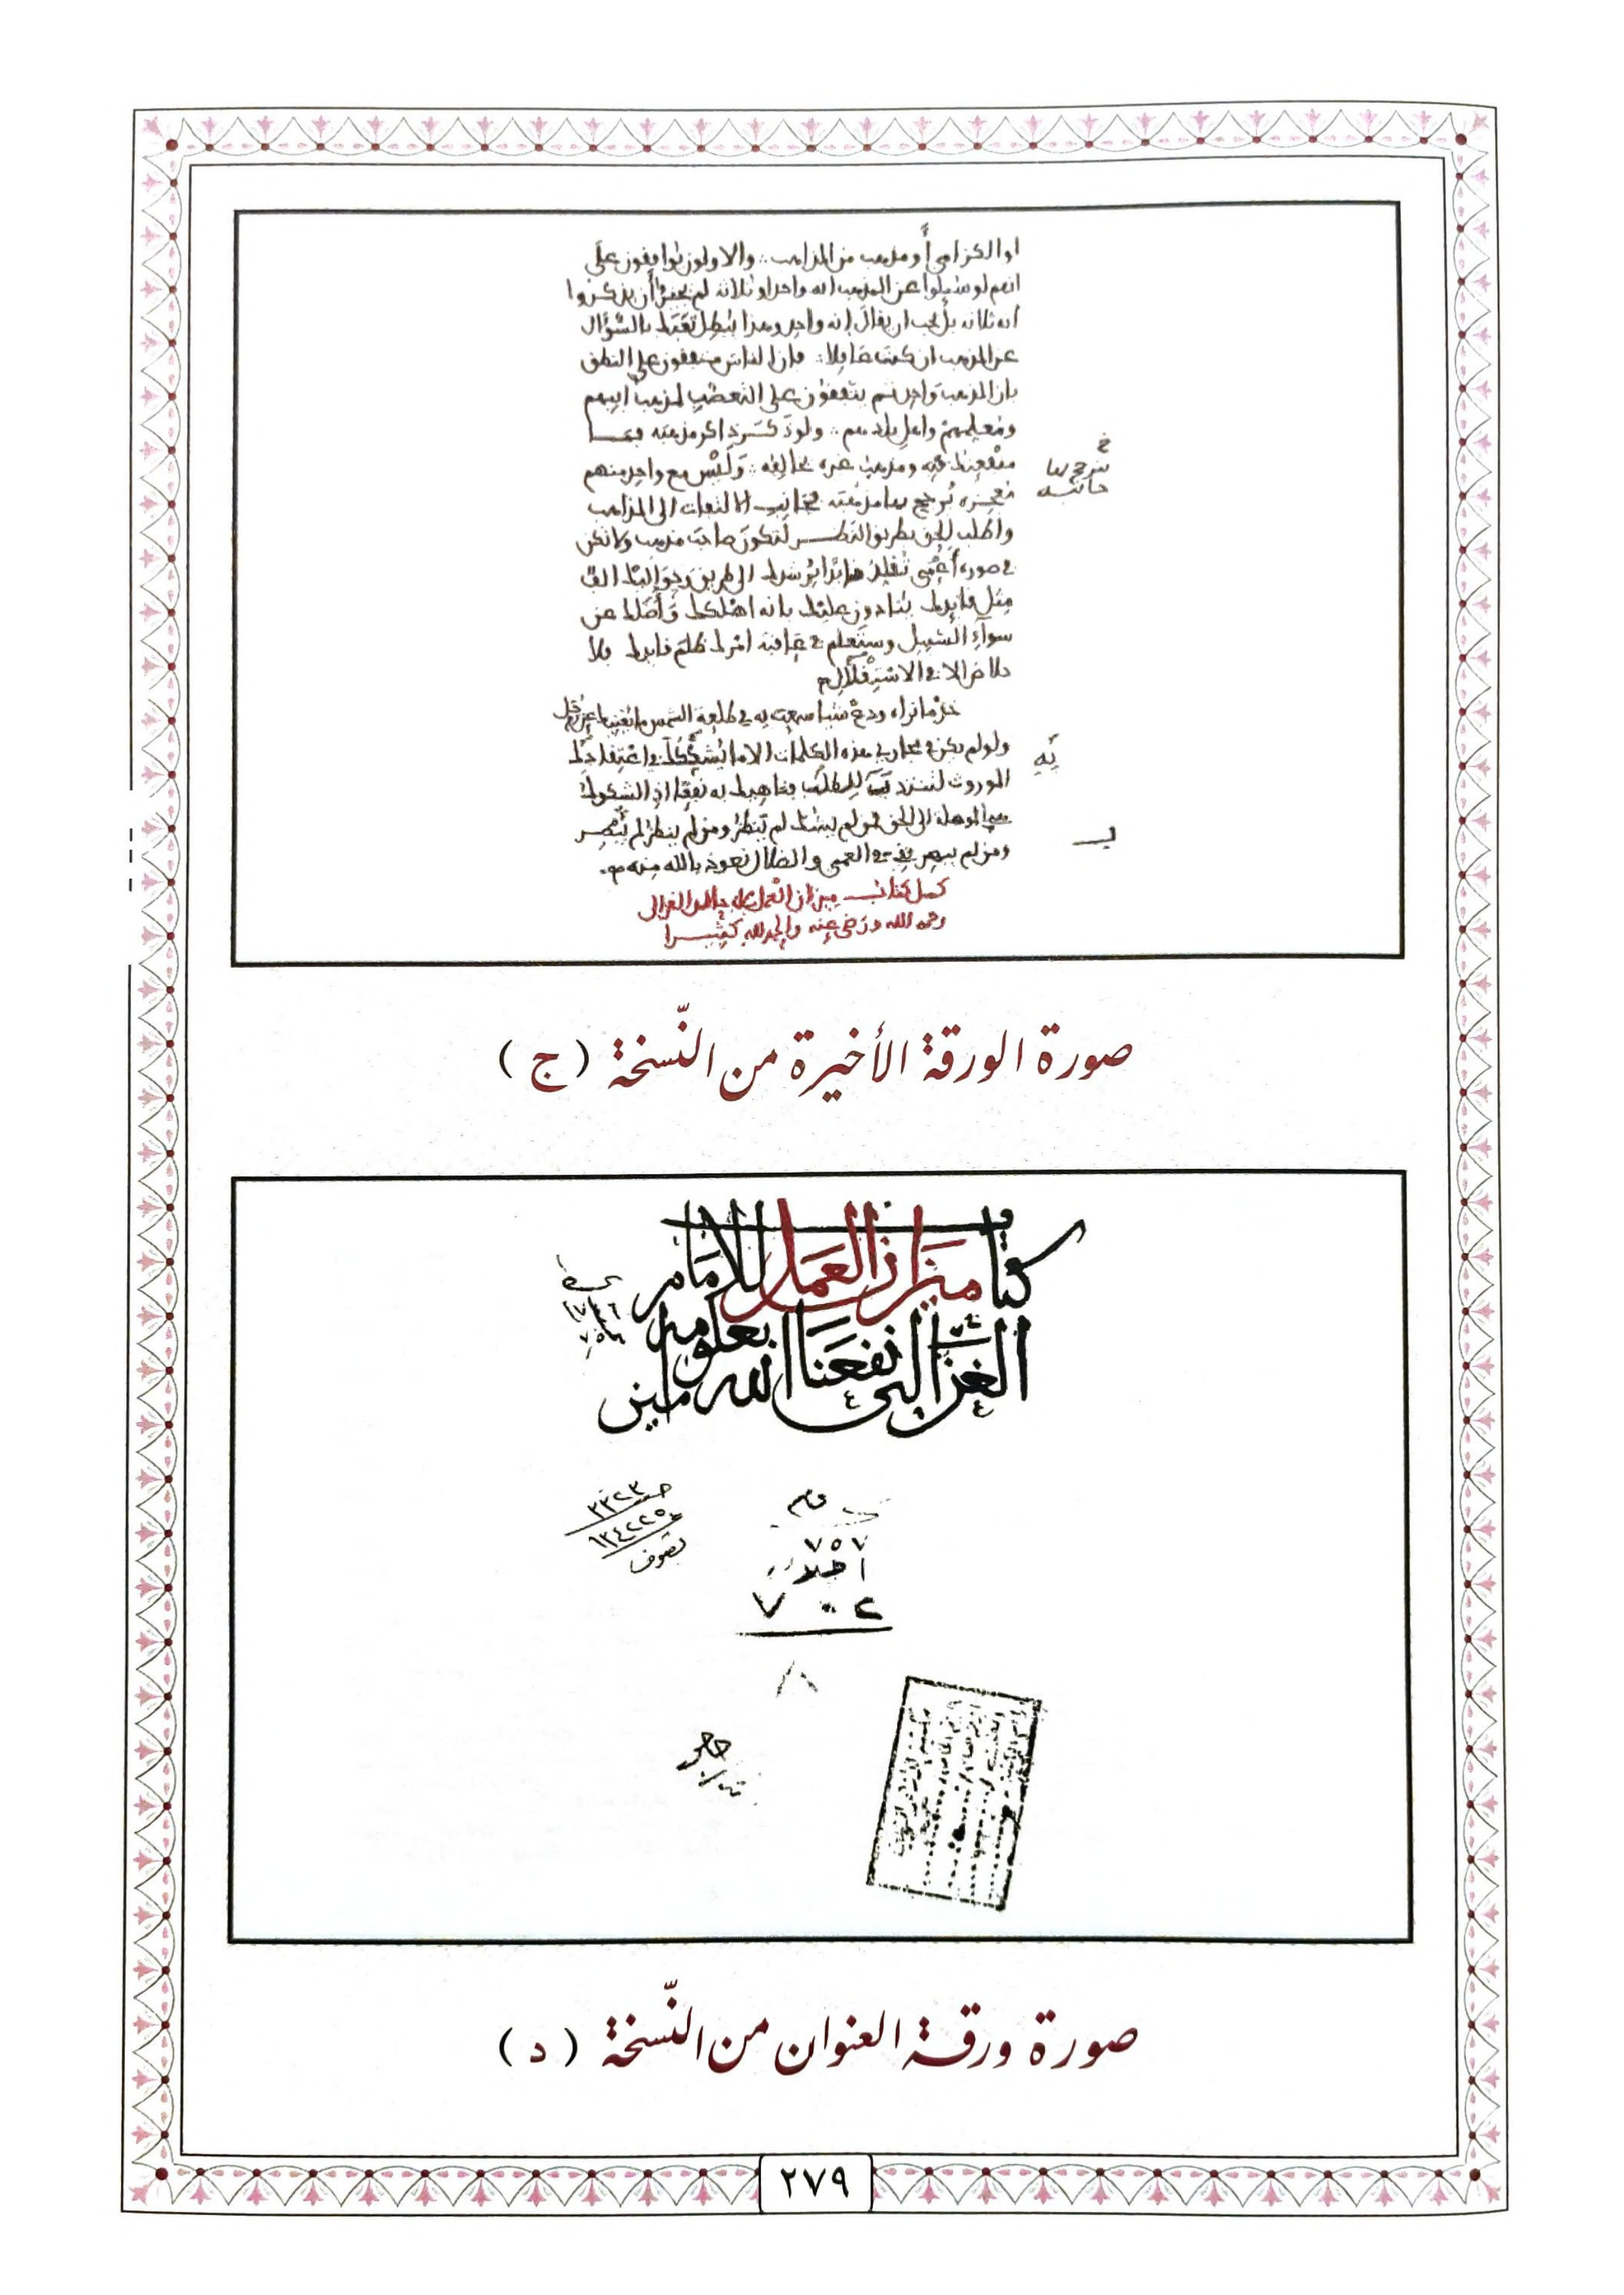 او الكرامي أو مذهب من المذاهب والاولون يوافقون على
انهم لو سئلوا عن المذهب انه واحد او ثلاثة لم يجز أن يذكروا
انه ثلاثة بل يجب ان يقال انه واحد وهذا يبطل تعبك بالسؤال
عن المذهب ان كنت عاقلا فان الناس متفقون على النطق
بان المذهب واحد ثم يتفقون على التعصب لمذهب ابيهم
ومعلمهم واهل بلدهم ولو ذكر ذاكر مذهبه فما
منفعتك فيه ومذهب غيره يخالفه وليس مع واحد منهم
معجزة يرجح بها مذهبه فجانب الالتفات الى المذاهب
واطلب الحق بطريق النظر لتكون صاحب مذهب ولا تكن
في صورة أعمى تقلد قائدا يرشدك الى طريق وحواليك الف
مثل قايدك ينادون عليك بانه اهلكك وأضلك عن
سواء السبيل وستعلم في عاقبة امرك ظلم قايدك فلا
خلاص الا في الاستقلال
خذ ما تراه ودع شيا سمعت به في طلعة الشمس ما يغنيك عن زحل
ولو لم يكن في مجاري هذه الكلمات الا ما يشكك في اعتقادك
الموروث لتنتدب للطلب فناهيك به نفعا اذ الشكوك
هي الموصلة الى الحق فمن لم يشك لم ينظر ومن لم ينظر لم يبصر
ومن لم يبصر بقي في العمى والضلال نعوذ بالله منه
كمل كتاب ميزان العمل لابي حامد الغزالي
رحمه الله ورضي عنه والحمد لله كثيرا
حاشية
صورة الورقة الأخيرة من النّسخة ( ج )
كتاب ميزان العمل للامام
الغزالي نفعنا الله بعلومه امين
٣٣٢٣
١٣٤٢٢٥
تصوف
٧٥٧
صورة ورقة العنوان من النّسخة ( د )
٢٧٩